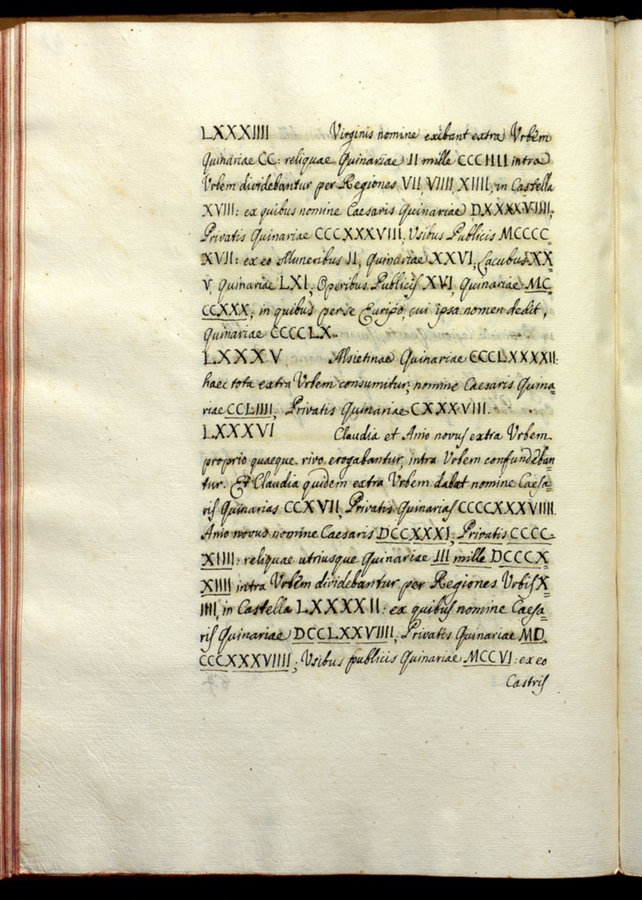 LXXXIIII Virginis nomine exibant extra Urbem
Quinariae CC: reliquae Quinariae II mille CCCIIII intra
Urbem dividebantur per Regiones VII, VIIII, XIIII, in Castella
XVIII: ex quibus nomine Caesaris Quinariae DXXXXVIIII,
Privatis Quinariae CCCXXXVIII, Usibus Publicis MCCCC-
XVII: ex eo Muneribus II, Quinariae XXVI, Lacubus XX
V, Quinariae LXI, Operibus Publicis XVI, Quinariae MC
CCXXX, in quibus per se Euripo, cui ipsa nomen dedit,
Quinariae CCCCLX.
LXXXV Alsietinae Quinariae CCCLXXXXII:
haec tota extra Urbem consumitur; nomine Caesaris Quina=
riae CCLIIII, Privatis Quinariae CXXXVIII.
LXXXVI Claudia et Anio novus extra Urbem
proprio quaeque rivo erogabantur, intra Urbem confundeban
tur. Et Claudia quidem extra Urbem dabat nomine Caesa=
ris Quinarias CCXVII, Privatis Quinarias CCCCXXXVIIII.
Anio novus nomine Caesaris DCCXXXI; Privatis CCCC-
XIIII: reliquae utriusque Quinariae III mille DCCCCX
XIIII intra Urbem dividebantur per Regiones Urbis X
IIII, in Castella LXXXXII: ex quibus nomine Caesa=
ris Quinariae DCCLXXVIIII, Privatis Quinariae MD.
CCCXXXVIIII; Usibus publicis Quinariae MCCVI: ex eo
Castris